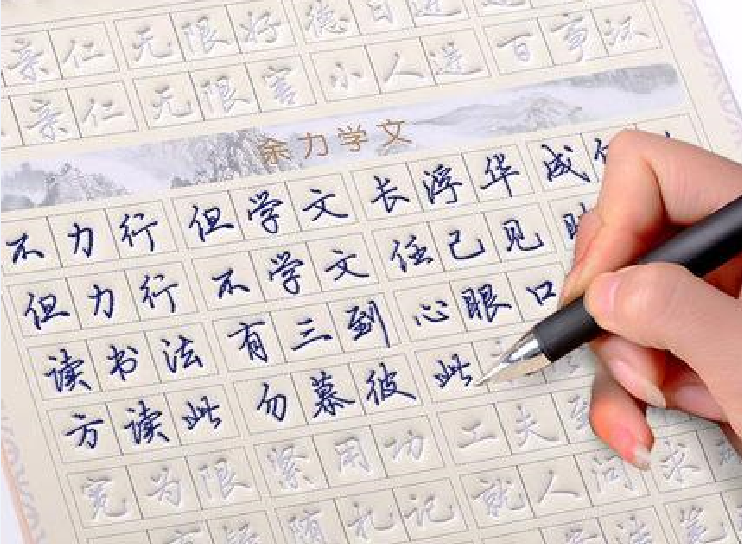 亲仁 无限好 德日进
亲仁 无限害 小人进 百事坏
余力学文
不力行 但学文 长浮华 成
但力行 不学文 任己见
读书法 有三到 心眼口
方读此 勿慕彼 此
宽为限 紧用功 工夫到
随札记 就人问 求